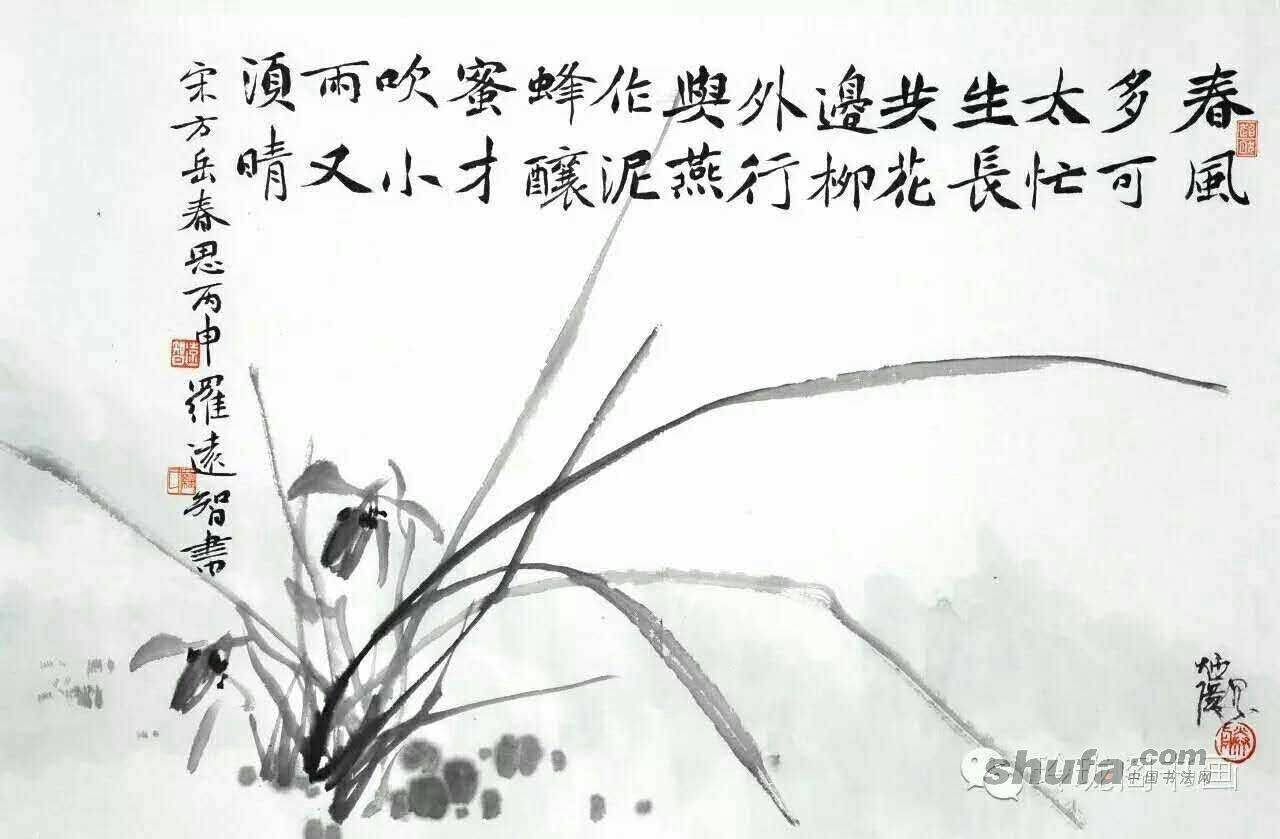 春風
多可
太忙
生長
共花
邊柳
外行
與燕
作泥
蜂釀
蜜才
吹小
雨又
湏晴
宋方岳春思丙申羅遠智書
shufa.com
中国书法网